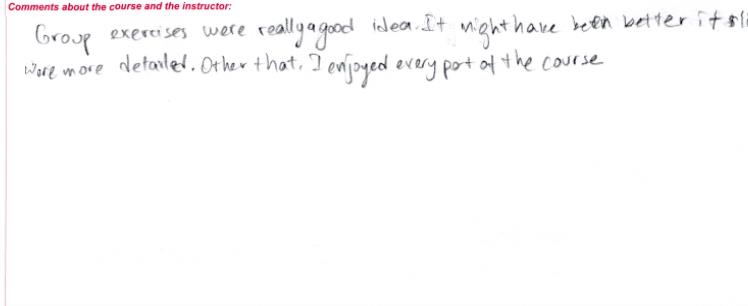 Comments about the course and the instructor:
Group exercises were really a good idea. It might have been better if sli
were more detailed. Other that, I enjoyed every part of the course